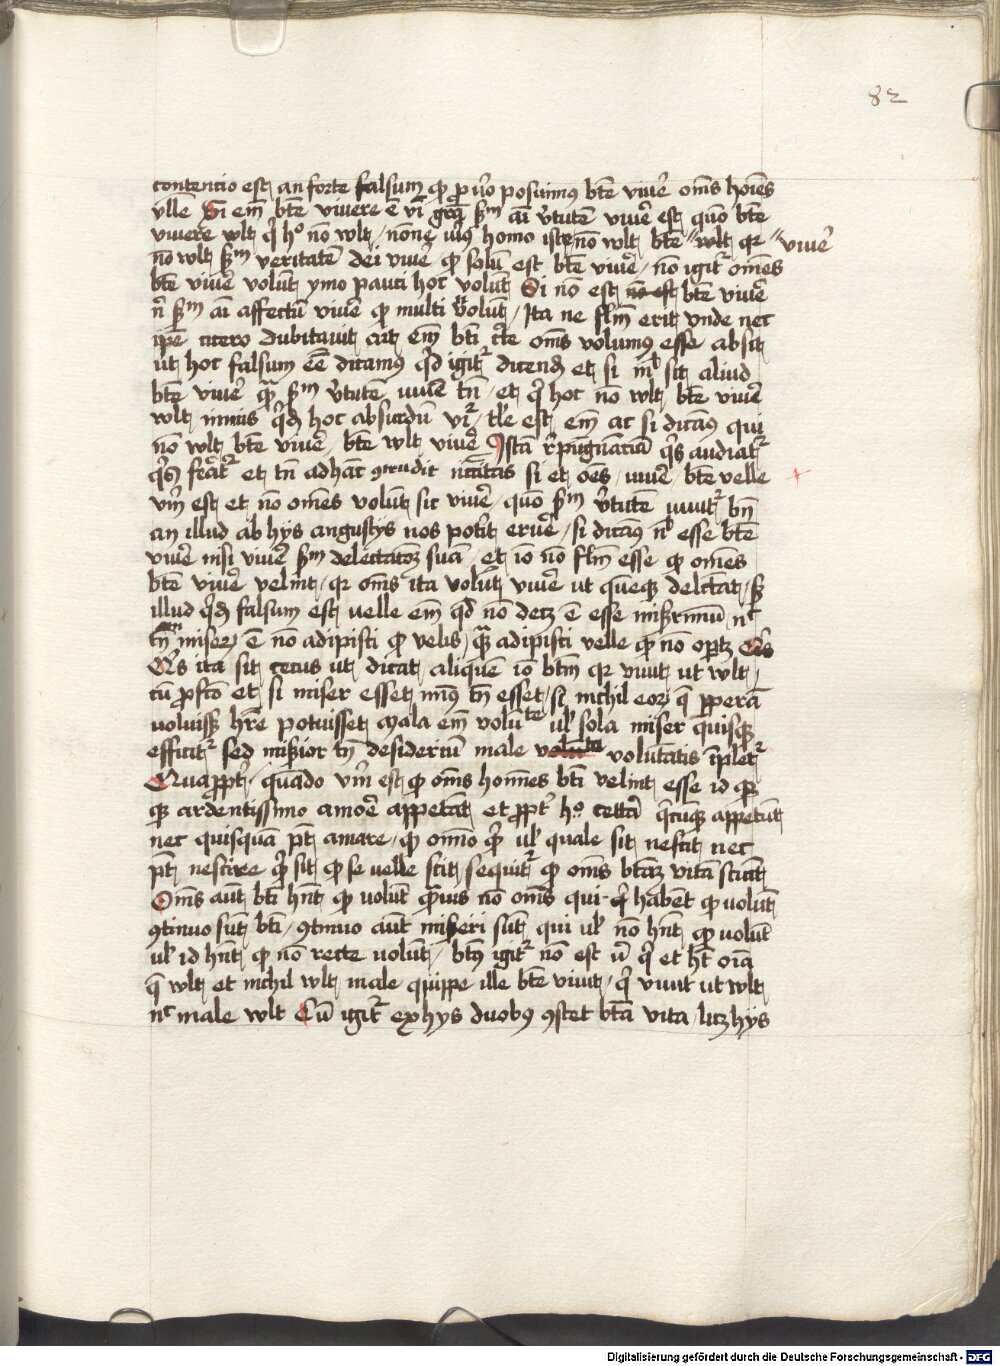 82
contentio est an forte falsum qd pro vero posuimus bte vivere oms hoies
velle Si em bte vivere e vi gra sm ai vtute vivere est quo bte
vivere wlt q ho no wlt / none verius homo iste no wlt bte wlt qr " vivere
no wlt sm veritate dei vivere qd solu est bte vivere / no igitr omes
bte vivere volut ymo pauci hoc volut Si no est no est bte vivere
n sm ai affectu vivere qd multi volut / Ita ne flm erit vnde nec
ipe cicero dubitavit ait em bti cte oms volumus esse absit
ut hoc falsum ee dicamus qd igitr dicend et si sit aliud
bte vivere qa sm vtute vivere tn et q hoc no wlt bte vivere
wlt nimis qde hoc absurdu vr / tle est em ac si dicam qui
no wlt bte vivere / bte wlt vivere Ista rpugnancia qs audiat
qs ferat et tn ad hac otrudit nccitas si et oes / vivere / bte velle
vm est et no omes volut sic vivere / quo sm vtute vivit bn
an illud ab hys angustys nos poterit eruere / si dicam nl esse bte
vivere nisi vivere sm delectatoz sua / et io no flm esse qd omes
bte vivere velint / qr oms ita volut vivere ut queqz delectat / sz
illud qde falsum est velle em qd no decz e esse miserrimu / nc
tn miser e no adipisci qd velis / qa adipisci velle qd no optz Qs
Qs ita sit cecus ut dicat alique io btm qr vivit ut wlt /
cu pfcto et si miser esset min tn esset / si nichil eorz q ppera
voluisz hre potuisset mala em volute ul sola miser quisqz
efficitr sed miserior tn desideriu male voluta voluntatis implet
Quappt / quado vm est qd oms homines bti velint esse id qz
qz ardentissimo amore appetat et ppt ho cetta qcuqz appetunt
nec quisqua pt amare / qd omnio qd ul quale sit nescit nec
pt nescire qd sit qd se velle scit / sequitr qd oms btaz vita sciat
Oms aut bti hnt qd volut qmvis no oms qui hnt qd habet qd volut
otinuo sut bti / otinuo aut miseri sut qui ul no hnt qd volut
ul id hnt qd no recte volut / btus igitr no est n q et ht oia
q wlt et nichil wlt male quippe ille bte vivit / q vivit ut wlt
nc male wlt Cu igitr ex hys duobz ostet bta vita / licz hys
Digitalisierung gefördert durch die Deutsche Forschungsgemeinschaft - DFG